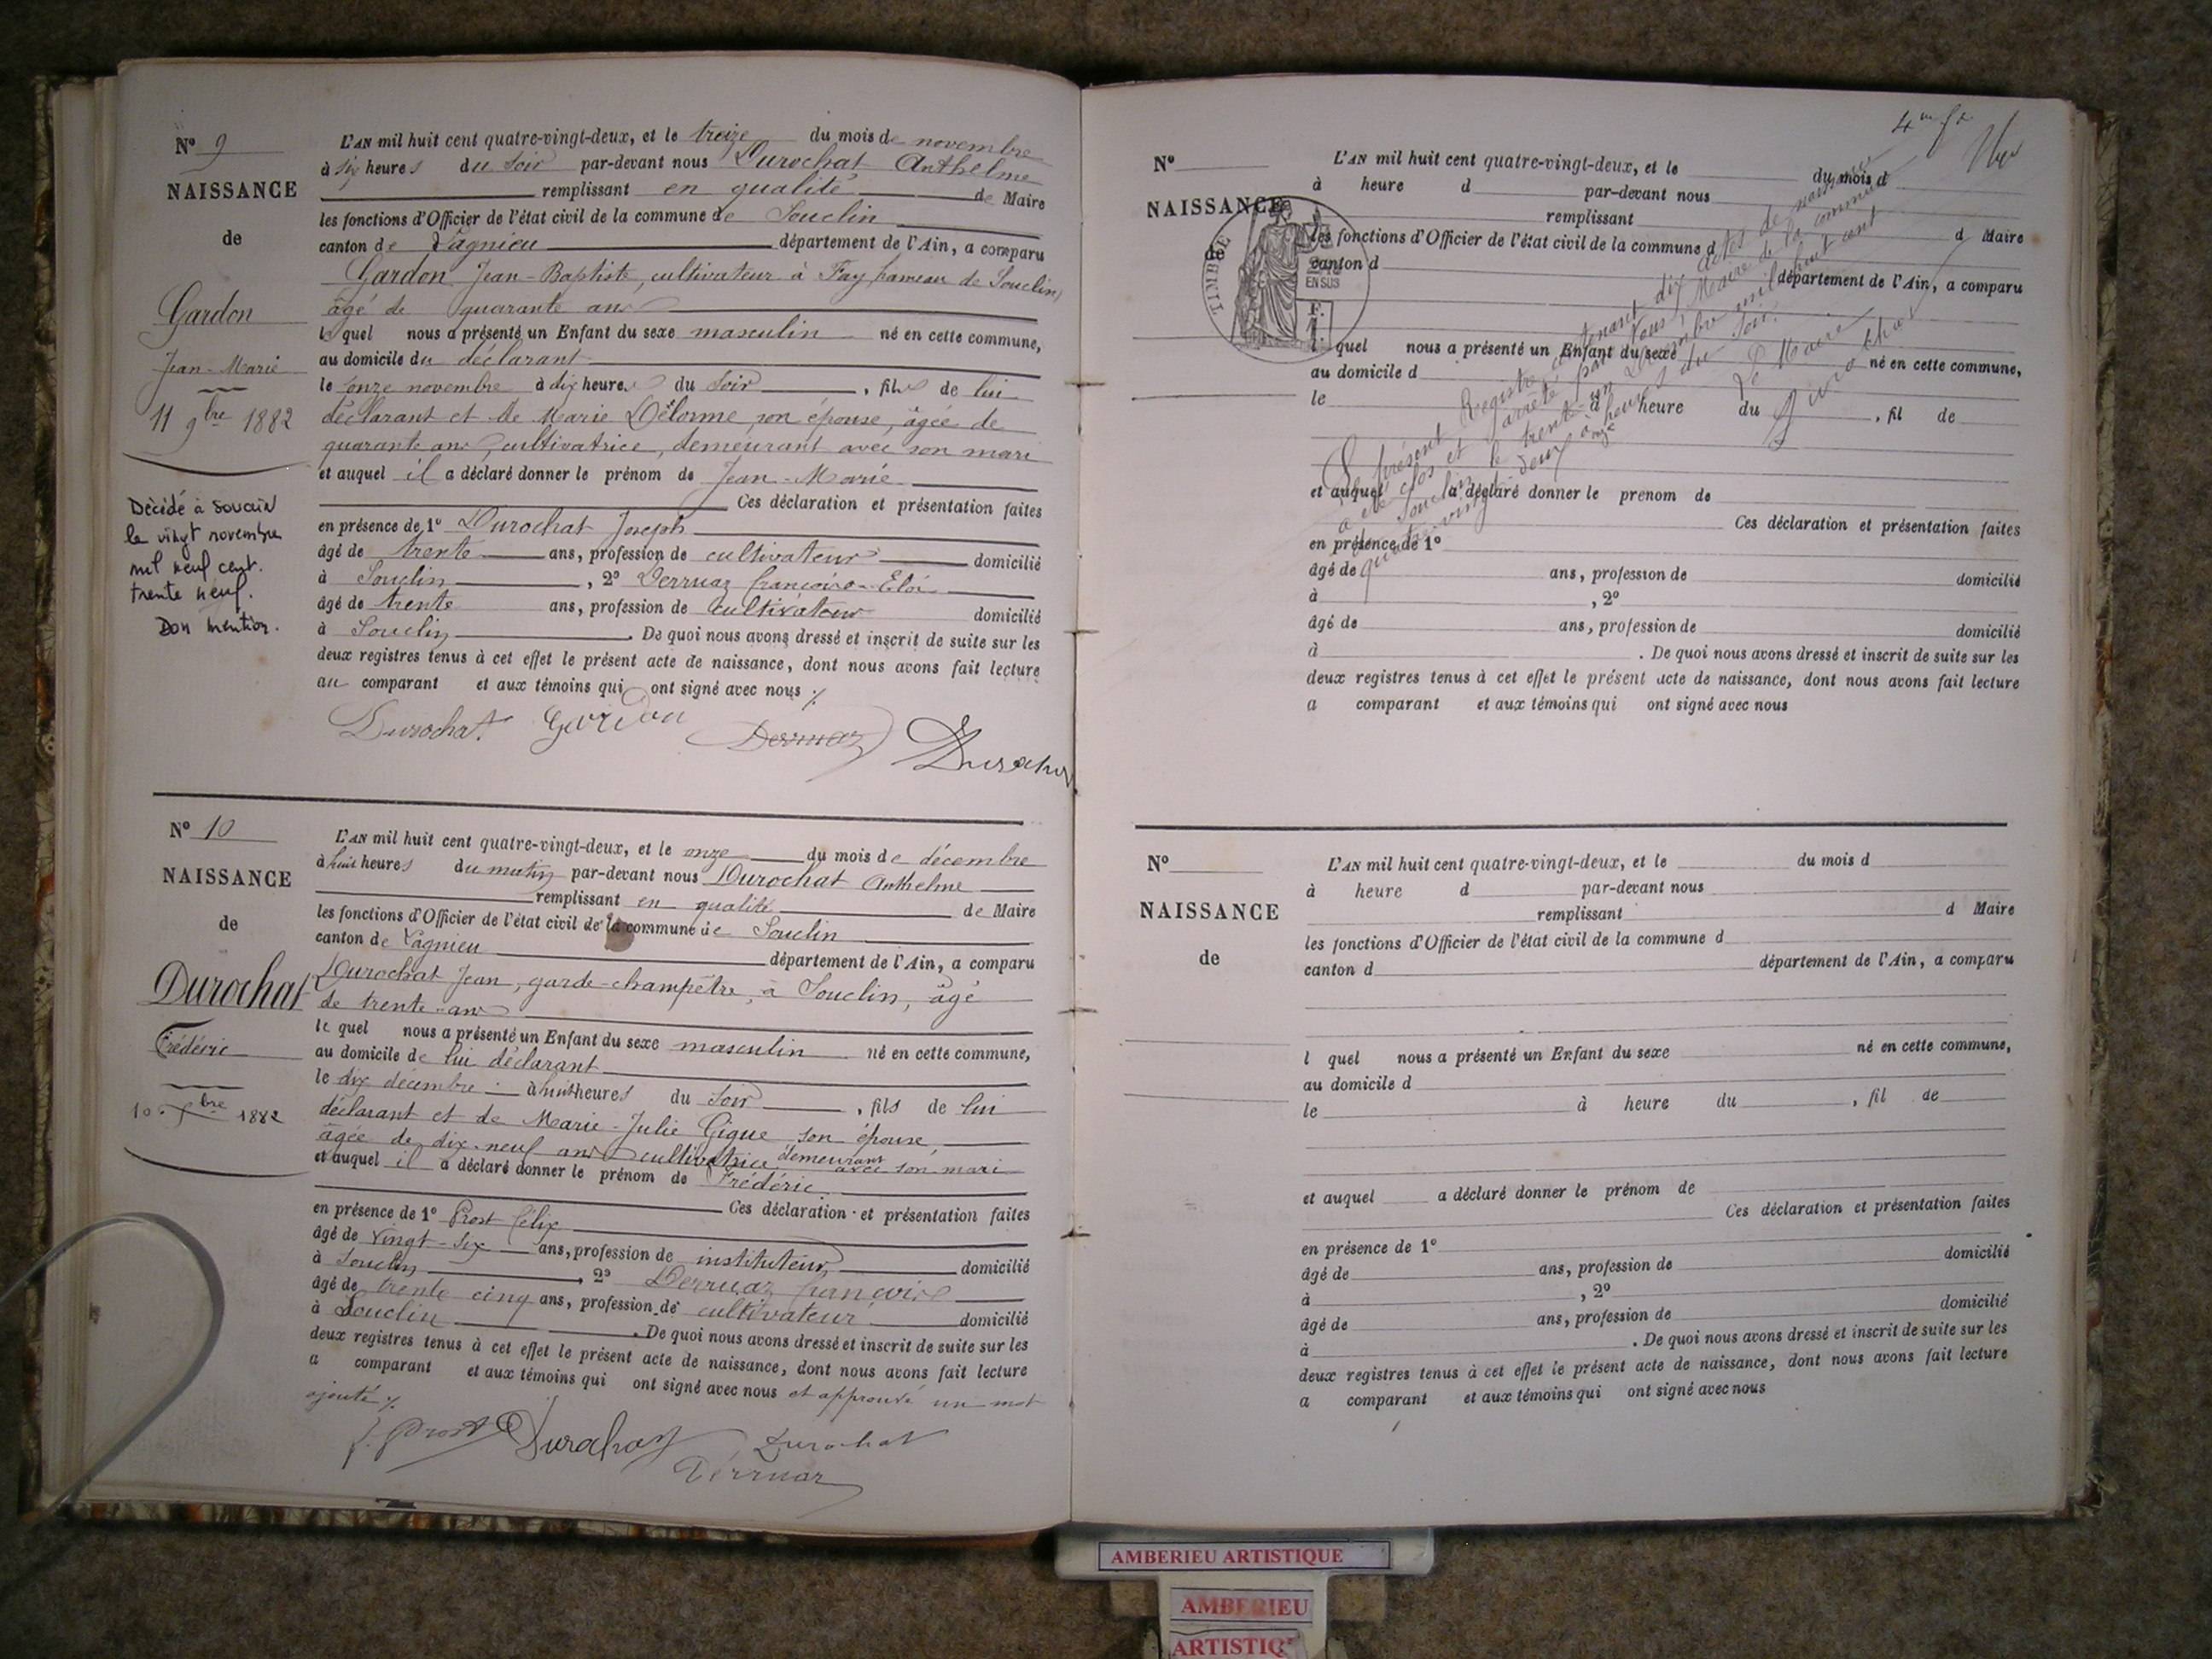 N° 9
NAISSANCE
de
Gardon
Jean-Marie
11 9bre 1882
Décédé à Souclin
le vingt novembre
mil neuf cent
trente neuf.
Don mention.
L'AN mil huit cent quatre-vingt-deux, et le treize du mois de novembre
à six heures du soir par-devant nous Durochat Anthelme
remplissant en qualité de Maire
les fonctions d'Officier de l'état civil de la commune de Souclin
canton de Lagnieu département de l'Ain, a comparu
Gardon Jean-Baptiste, cultivateur à Fay hameau de Souclin,
âgé de quarante ans
lequel nous a présenté un Enfant du sexe masculin né en cette commune,
au domicile du déclarant
le onze novembre à dix heures du soir, fils de lui
déclarant et de Marie Delorme, son épouse, âgée de
quarante ans, cultivatrice, demeurant avec son mari
et auquel il a déclaré donner le prénom de Jean-Marie
Ces déclaration et présentation faites
en présence de 1° Durochat Joseph
âgé de trente ans, profession de cultivateur domicilié
à Souclin, 2° Derruaz françois-Eloi
âgé de trente ans, profession de cultivateur domicilié
à Souclin. De quoi nous avons dressé et inscrit de suite sur les
deux registres tenus à cet effet le présent acte de naissance, dont nous avons fait lecture
au comparant et aux témoins qui ont signé avec nous ./.
Durochat Gardon Derruaz Durochat
N° 10
NAISSANCE
de
Durochat
Frédéric
10 Xbre 1882
L'AN mil huit cent quatre-vingt-deux, et le onze du mois de décembre
à huit heures du matin par-devant nous Durochat Anthelme
remplissant en qualité de Maire
les fonctions d'Officier de l'état civil de la commune de Souclin
canton de Lagnieu département de l'Ain, a comparu
Durochat Jean, garde-champêtre, à Souclin, âgé
de trente-ans
lequel nous a présenté un Enfant du sexe masculin né en cette commune,
au domicile de lui déclarant
le dix décembre à huit heures du soir, fils de lui
déclarant et de Marie-Julie Gigue son épouse,
âgée de dix-neuf ans cultivatrice demeurant avec son mari
et auquel il a déclaré donner le prénom de Frédéric
Ces déclaration et présentation faites
en présence de 1° Prost félix
âgé de vingt-six ans, profession de instituteur domicilié
à Souclin, 2° Derruaz françois
âgé de trente cinq ans, profession de cultivateur domicilié
à Souclin. De quoi nous avons dressé et inscrit de suite sur les
deux registres tenus à cet effet le présent acte de naissance, dont nous avons fait lecture
a comparant et aux témoins qui ont signé avec nous et approuvé un mot
ajouté ./.
f. Prost Durochat Durochat
Derruaz
4me ft
N°
NAISSANCE
de
TIMBRE
EN SUS
L'AN mil huit cent quatre-vingt-deux, et le du mois d
à heure d par-devant nous
remplissant d Maire
les fonctions d'Officier de l'état civil de la commune d
canton d département de l'Ain, a comparu
l quel nous a présenté un Enfant du sexe né en cette commune,
au domicile d
le à heure du , fil de
et auquel a déclaré donner le prenom de
Ces déclaration et présentation faites
en présence de 1°
âgé de ans, profession de domicilié
à , 2°
âgé de ans, profession de domicilié
à . De quoi nous avons dressé et inscrit de suite sur les
deux registres tenus à cet effet le présent acte de naissance, dont nous avons fait lecture
a comparant et aux témoins qui ont signé avec nous
Le présent Registre contenant dix actes de naissance
a été clos et arrêté par nous, Maire de la commune
Souclin le trente-un Décembre mil huit cent
quatre-vingt-deux à onze heures du soir.
Le Maire
Durochat
N°
NAISSANCE
de
L'AN mil huit cent quatre-vingt-deux, et le du mois d
à heure d par-devant nous
remplissant d Maire
les fonctions d'Officier de l'état civil de la commune d
canton d département de l'Ain, a comparu
l quel nous a présenté un Enfant du sexe né en cette commune,
au domicile d
le à heure du , fil de
et auquel a déclaré donner le prénom de
Ces déclaration et présentation faites
en présence de 1°
âgé de ans, profession de domicilié
à , 2°
âgé de ans, profession de domicilié
à . De quoi nous avons dressé et inscrit de suite sur les
deux registres tenus à cet effet le présent acte de naissance, dont nous avons fait lecture
a comparant et aux témoins qui ont signé avec nous
AMBERIEU ARTISTIQUE
AMBERIEU
ARTISTIQ